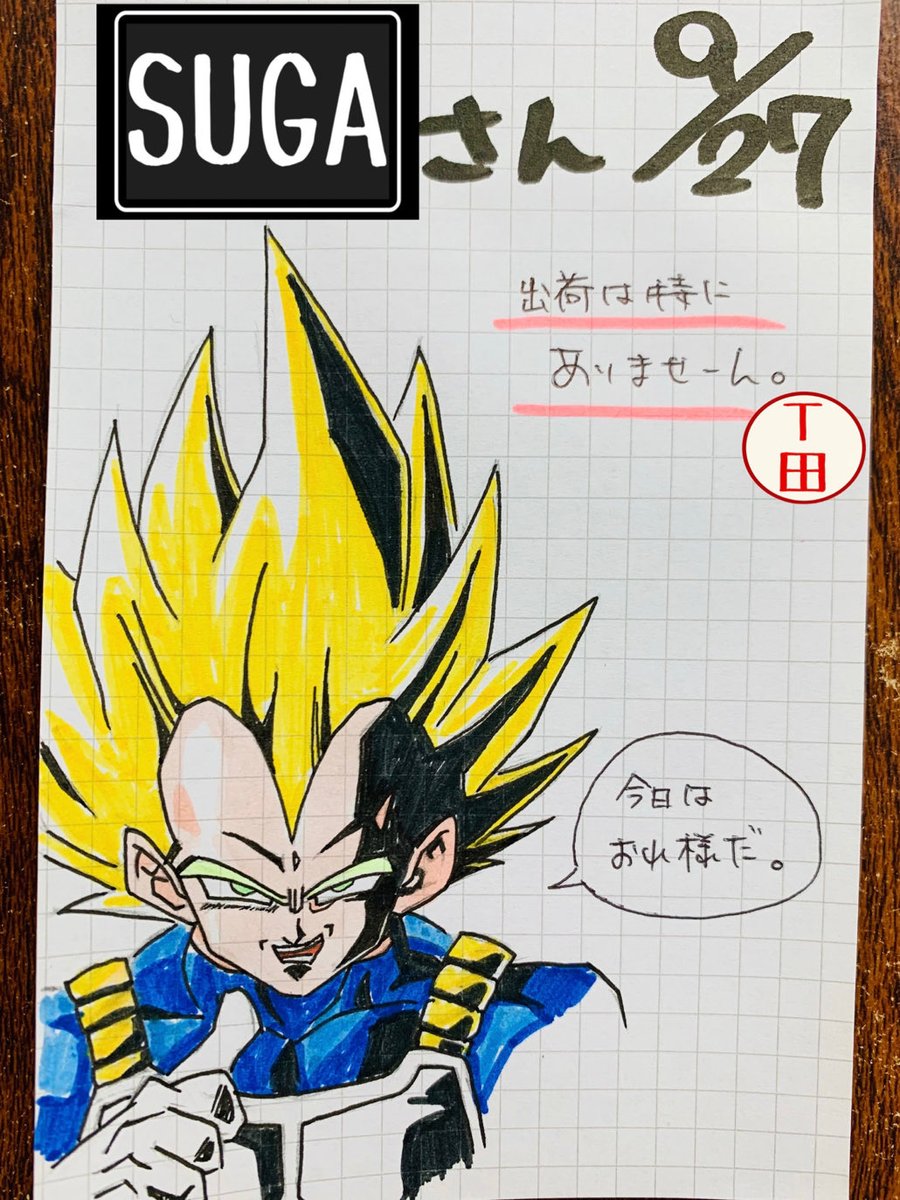 SUGA さん 9/27
出荷は特に
ありませーん。
T
田
今日は
おれ様だ。